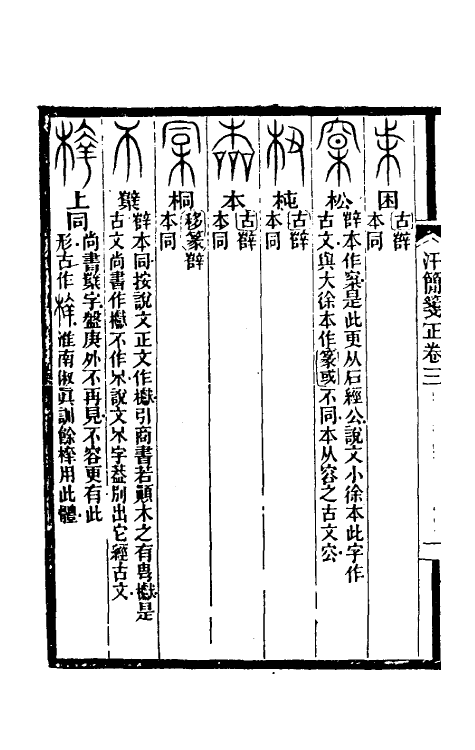 汗簡箋正卷三
困
古辥
本同
松
辥本作窠是此更从石經公說文小徐本此字作
古文與大徐本作篆或不同本从容之古文㕣
杶
古辥
本同
本
古辥
本同
桐
移篆辥
本同
櫱
辥本同按說文正文作㰕引商書若顚木之有㽕㰕是
古文尚書作㰕不作𣎴說文𣎴字葢別出它經古文
上同
尚書櫱字盤庚外不再見不容更有此
形古作梓淮南俶眞訓餘梓用此體